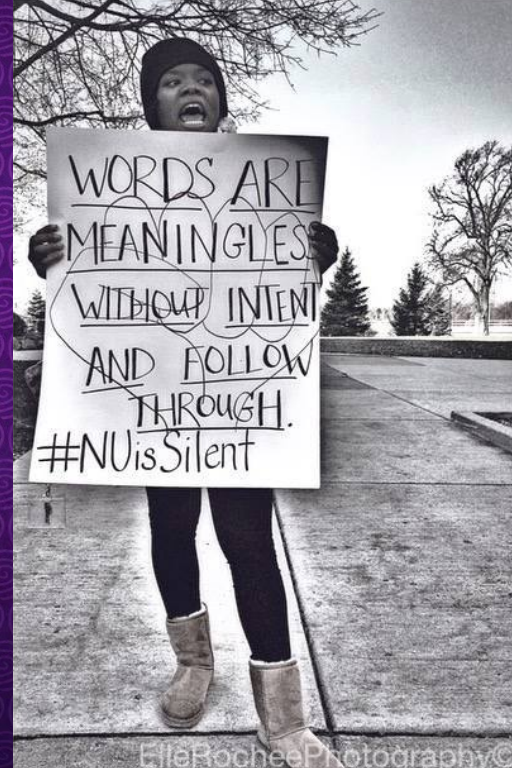 WORDS ARE
MEANINGLES
WITHOUT INTENT
AND FOLLOW
THROUGH.
#NUisSilent
ElleRocheePhotography©